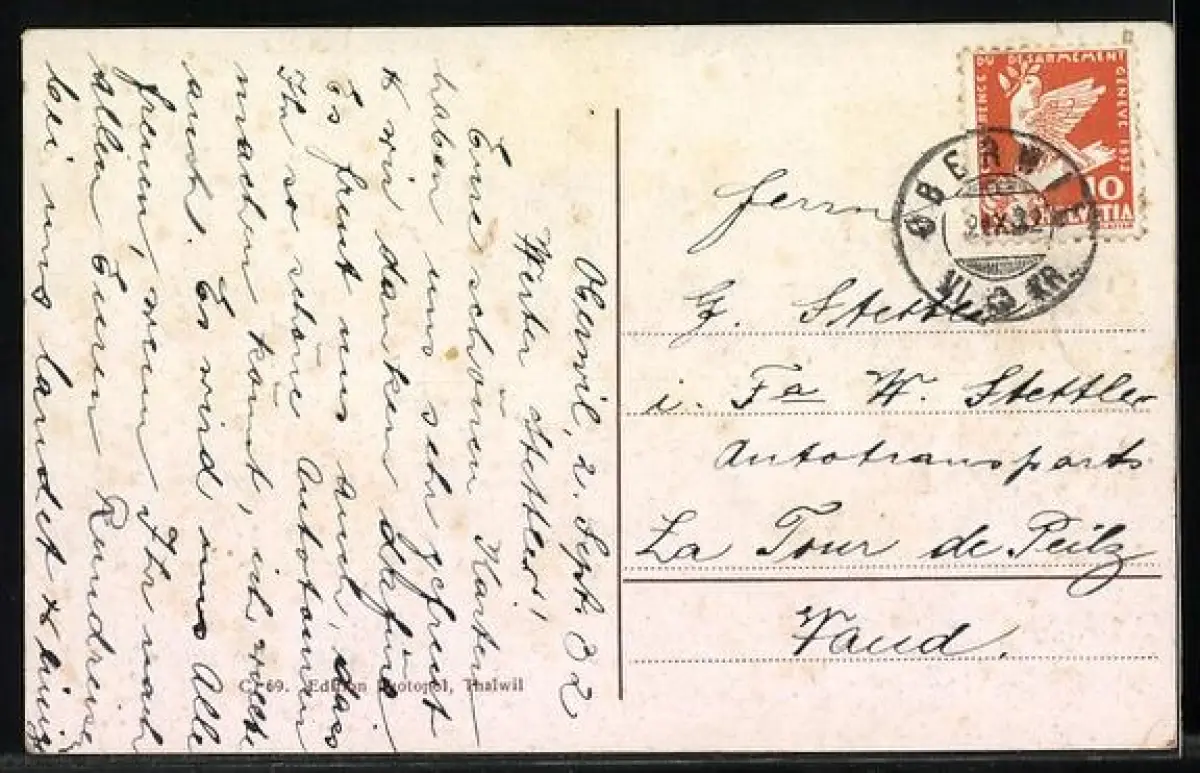 Oberwil, 2. Sept. 32
Werter Stettler,
Eure schönen Karten
haben uns sehr gefreut
& wir danken dafür.
Es freut uns auch, dass
Ihr so schöne Autotouren
machen könnt, ich wollte
auch. Es wird uns Alle
freuen, wenn Ihr nach
allen Euren Rundreisen
bei uns landet &
C. 69. Edition Photopol, Thalwil
CONFERENCE DU DESARMEMENT GENEVE 1932
10
HELVETIA
OBERWIL
IX.32
KR.
Herrn
G. Stettler
i. Fa W. Stettler
Autotransports
La Tour de Peilz
Vaud.